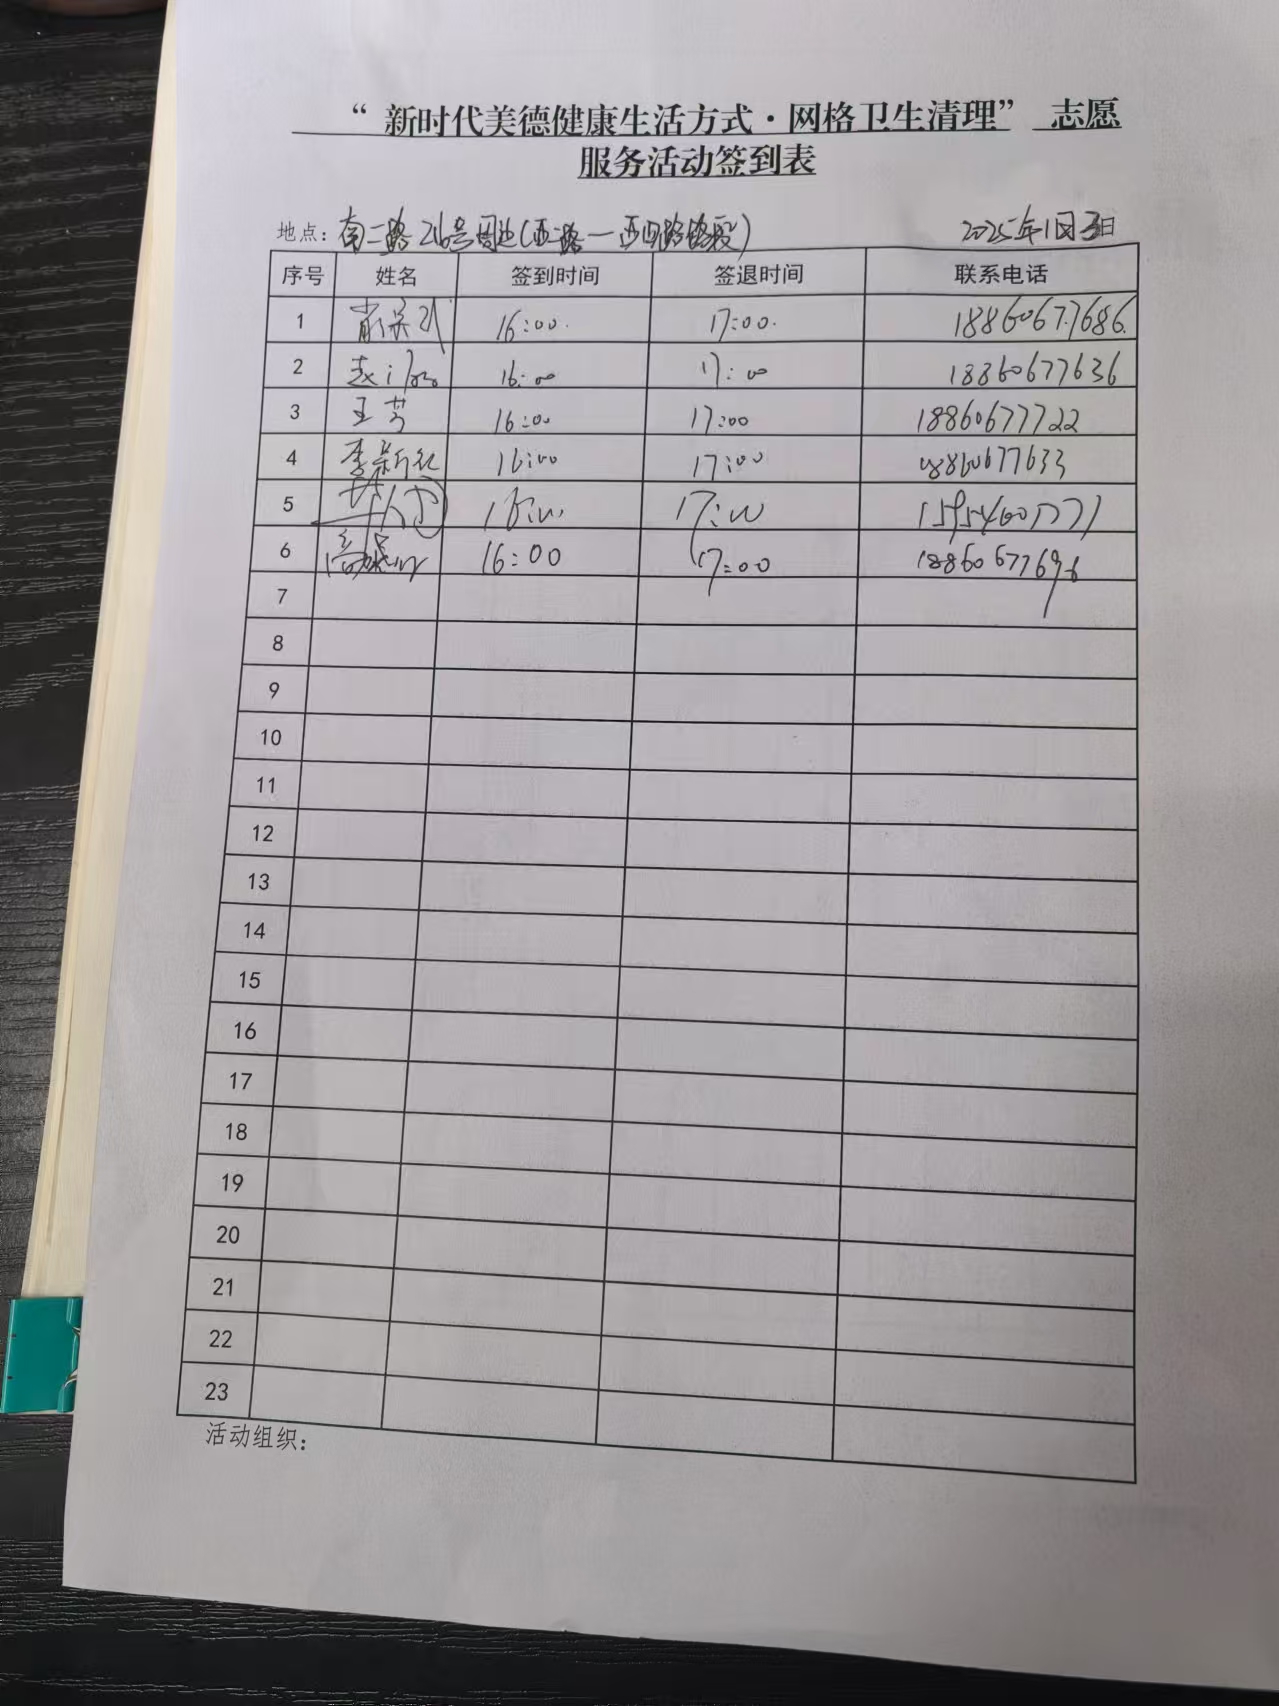 “新时代美德健康生活方式·网格卫生清理” 志愿
服务活动签到表
地点：南二路216号周边(西二路一西四路路段) 2025年1月3日
序号 姓名 签到时间 签退时间 联系电话
1 16:00. 17:00. 18860677686.
2 赵 16:00 17:00 18860677636
3 王芳 16:00 17:00 18860677722
4 李新红 16:00 17:00 18860677633
5 16:00 17:00
6 高 16:00 17:00 18860677696
7
8
9
10
11
12
13
14
15
16
17
18
19
20
21
22
23
活动组织：